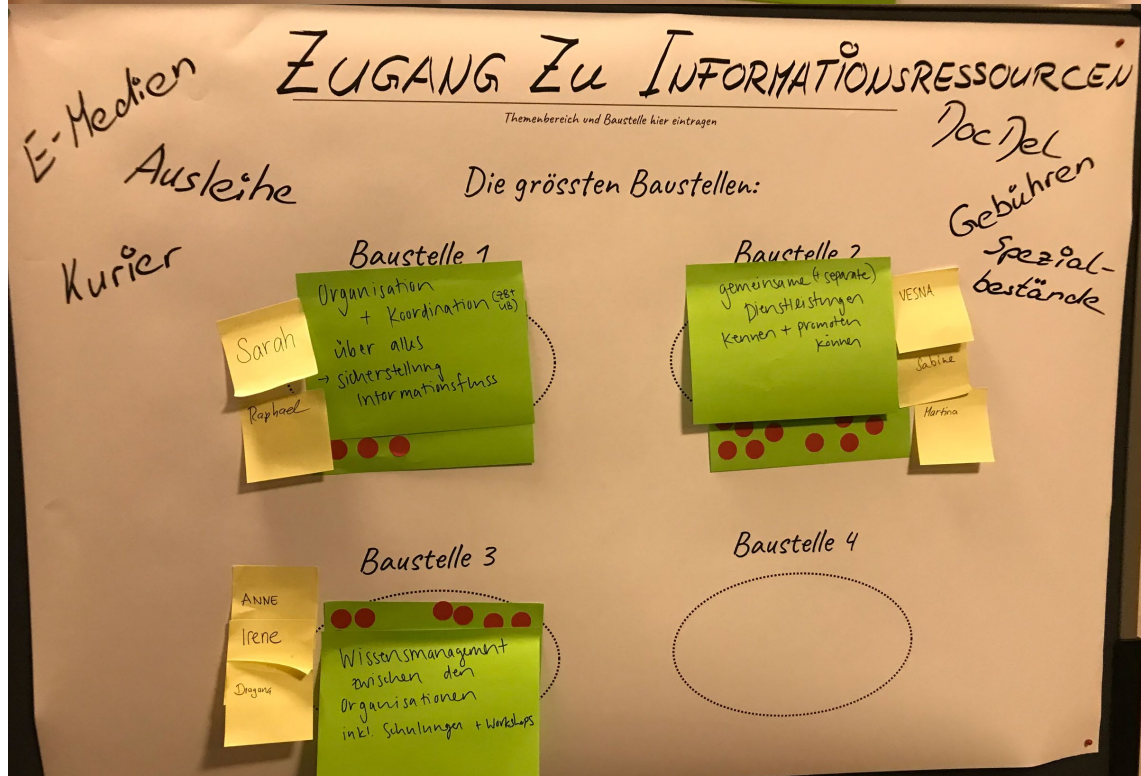 ZUGANG ZU INFORMATIONSRESSOURCEN
Themenbereich und Baustelle hier eintragen
E-Medien
Ausleihe
Kurier
DocDel
Gebühren
Spezial-
bestände
Die grössten Baustellen:
Baustelle 1
Organisation
+ Koordination (ZB+
UB)
über alles
→ sicherstellung
Informationsfluss
Sarah
Raphael
Baustelle 2
gemeinsame (+ separate)
Dienstleistungen
kennen + promoten
können
VESNA
Sabine
Martina
Baustelle 3
ANNE
Irene
Dragana
Wissensmanagement
zwischen den
Organisationen
inkl. Schulungen + Workshops
Baustelle 4